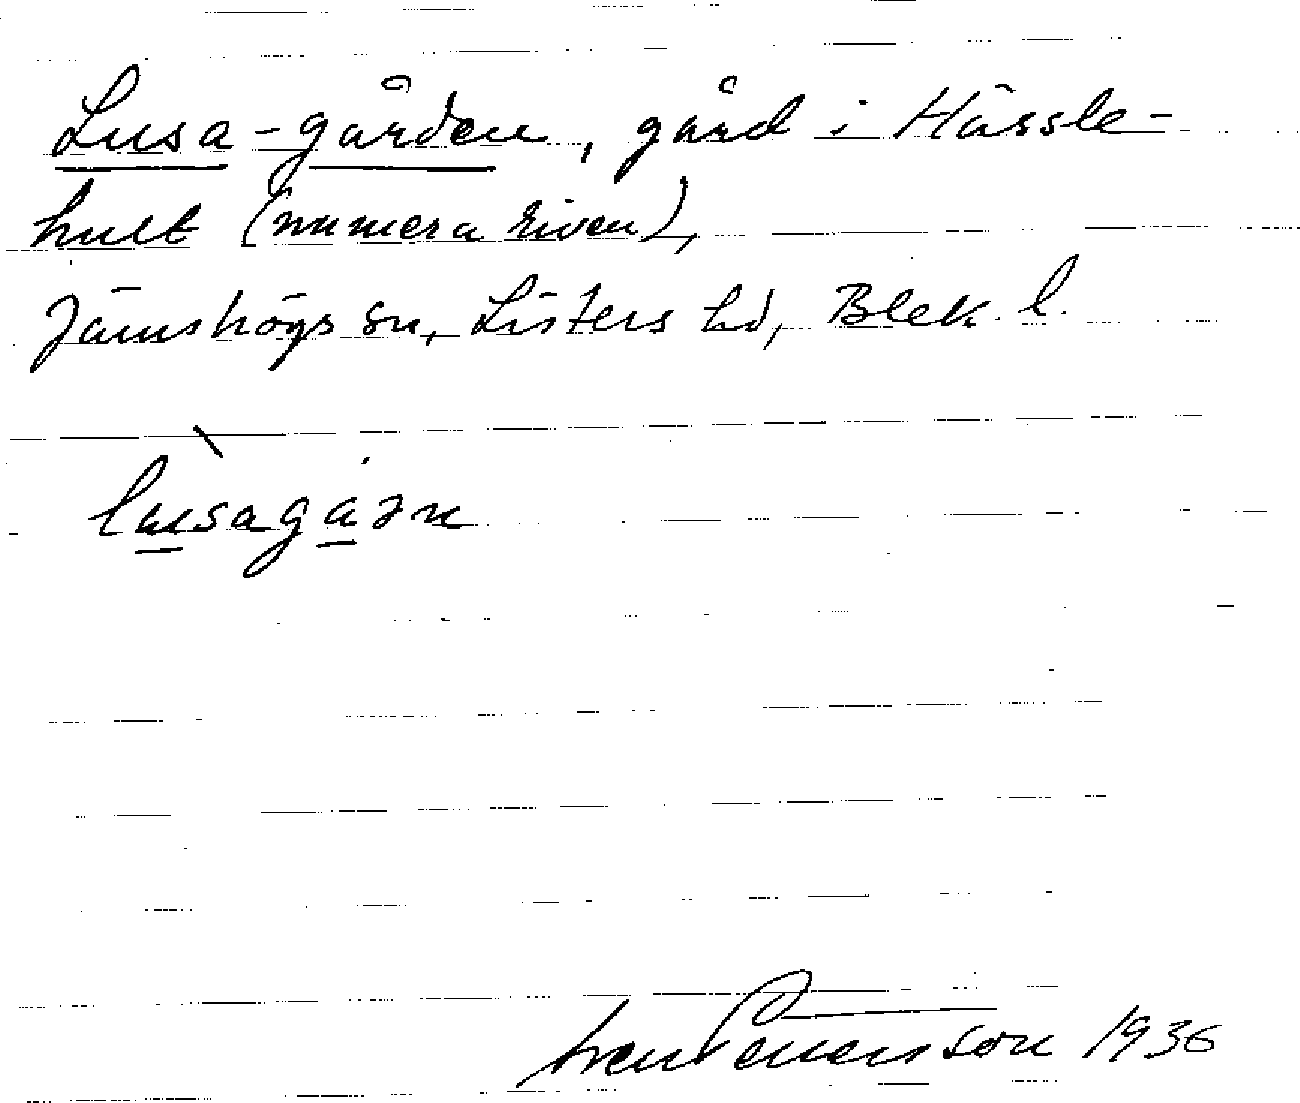 Lusa-gården, gård i Hässle-
hult (numera riven),
Jämshögs sn, Listers hd, Blek. l.
lusagårn
Sven Pettersson 1936